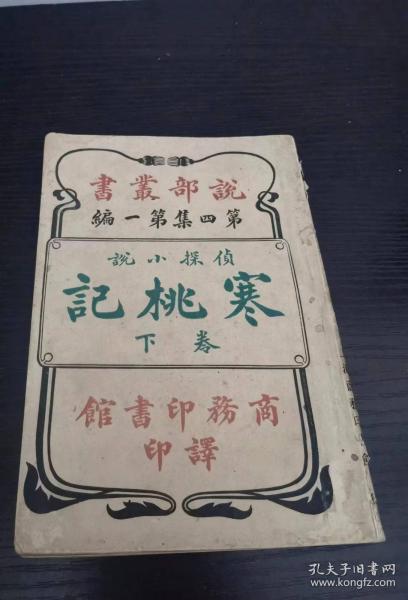 説部叢書
第四集第一編
偵探小説
寒桃記
卷下
商務印書館
譯印
孔夫子旧书网
www.kongfz.com